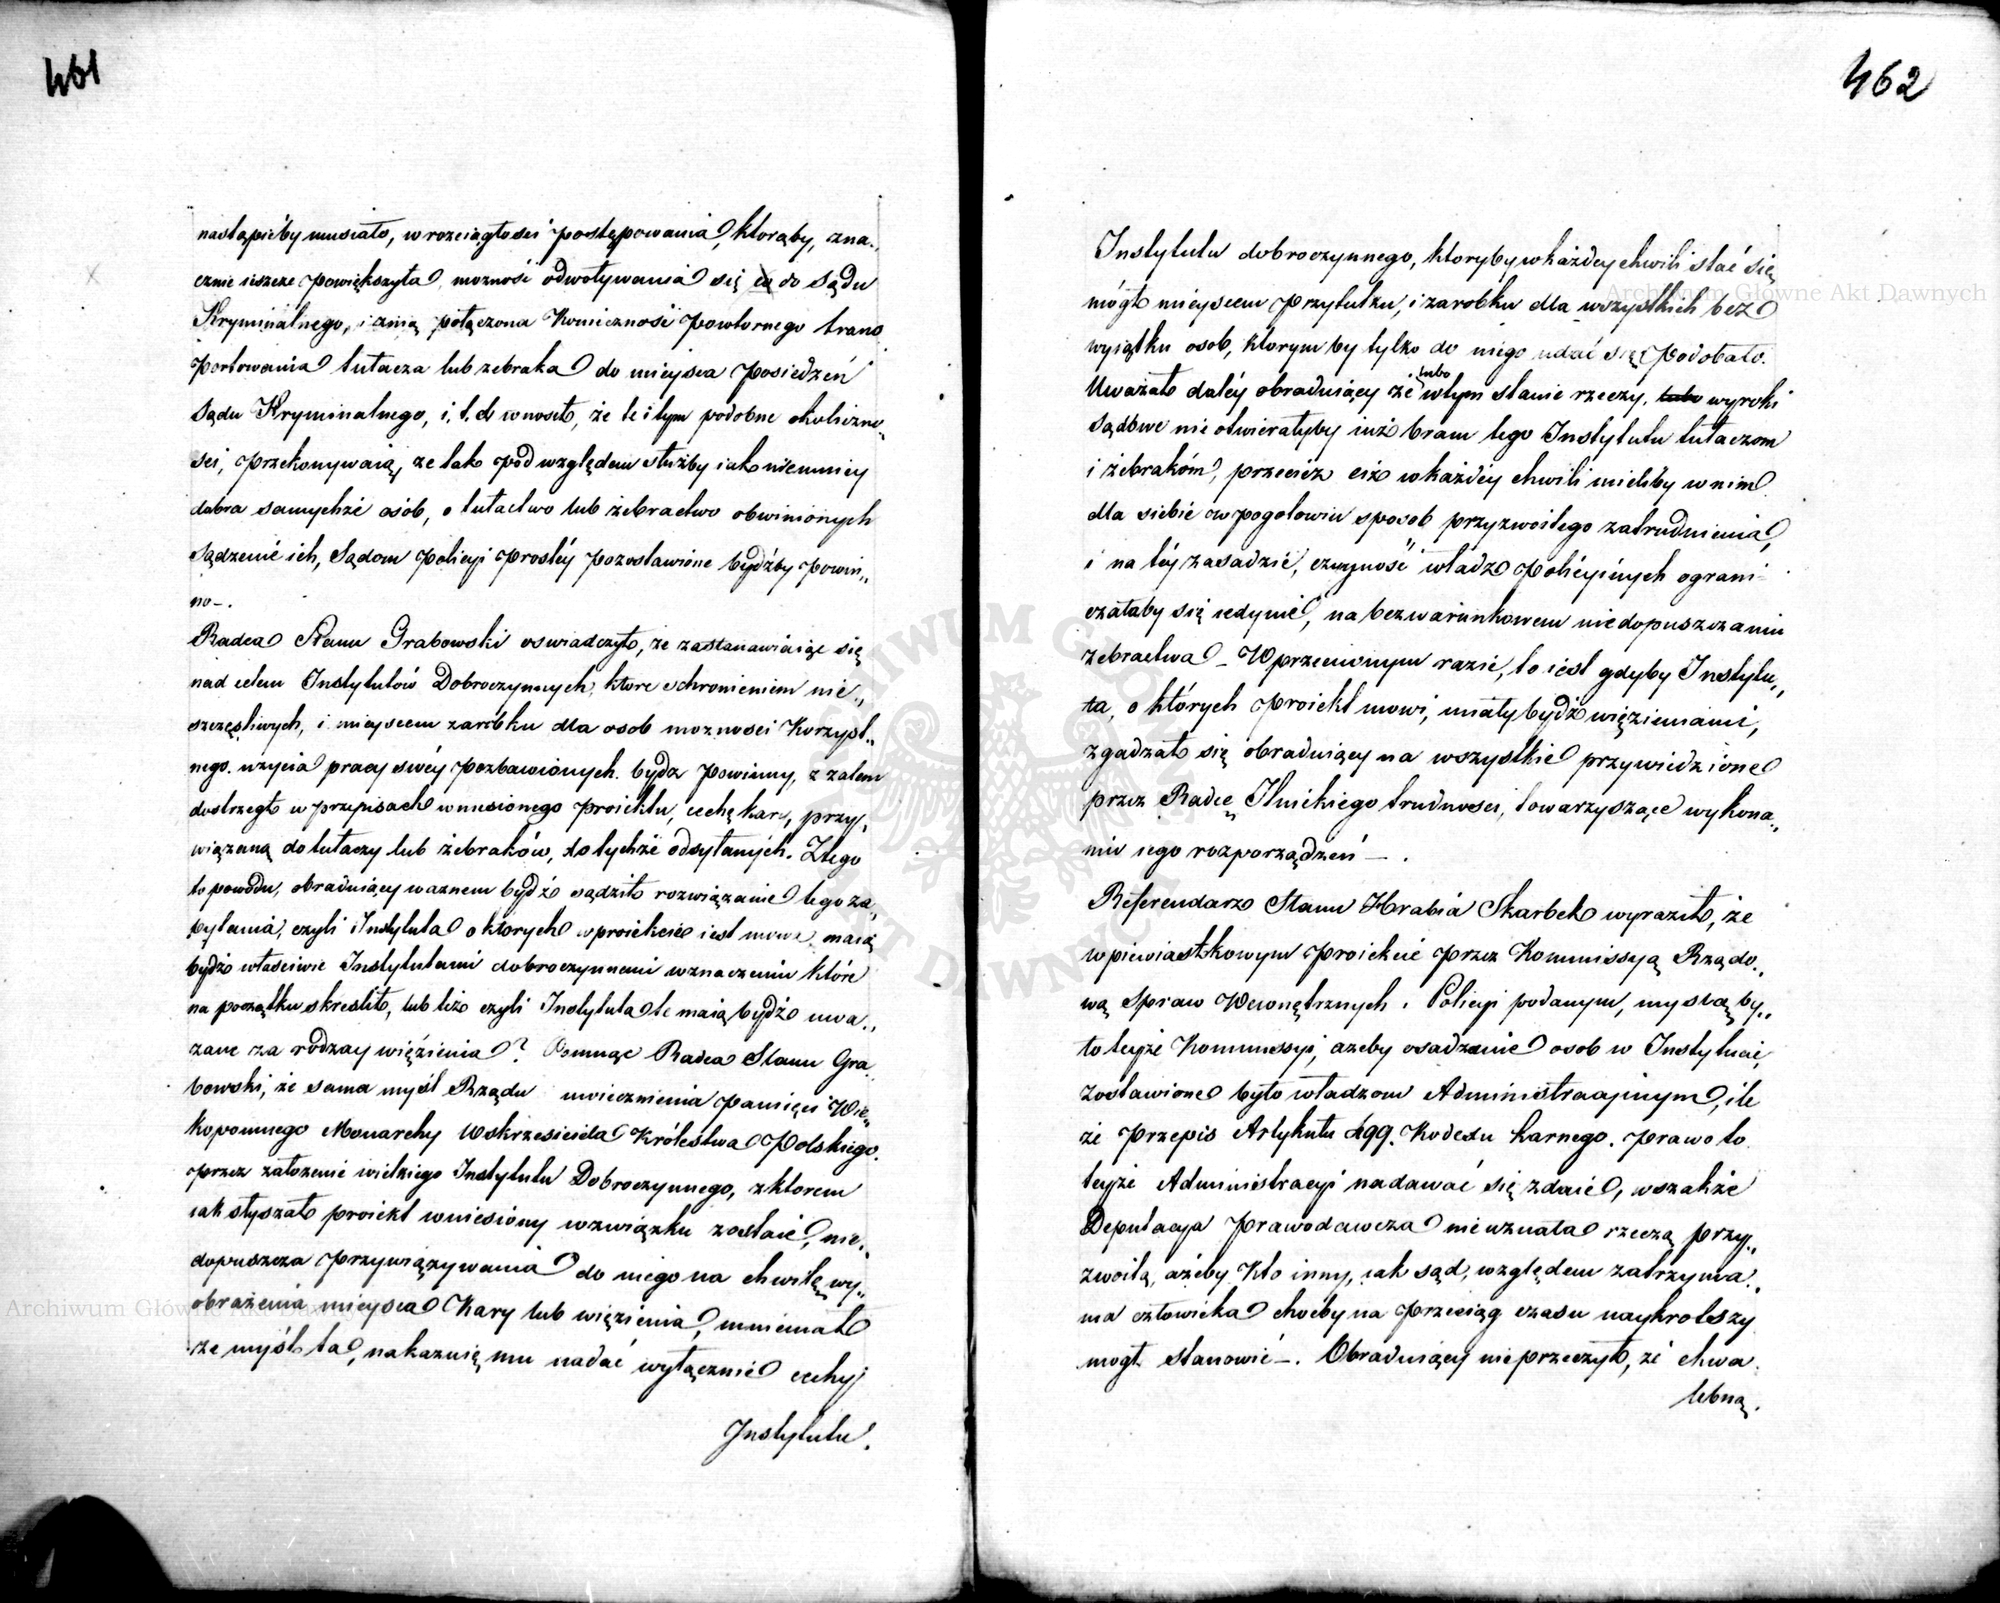 461
nastąpićby musiało, w rozciągłości postępowania, którąby, zna„
cznie ieszcze powiększyła możność odwoływania się do Sądu
Kryminalnego, i z nią połączona konieczność powtórnego trans
portowania tułacza lub żebraka do mieysca posiedzeń
Sądu Kryminalnego, i. t. d. wnosił, że te i tym podobne okoliczno„
ści, przekonywaią, że tak pod względem służby iak niemniey
dobra samychże osób, o tułactwo lub żebractwo obwinionych
sądzenie ich, Sądom Policyi prostéy pozostawione bydźby powin„
no –.
Radca Stanu Grabowski oswiadczył, że zastanawiaiąc się
nad celem Instytutów Dobroczynnych, które schronieniem nie„
szczęśliwych, i mieyscem zarobku dla osob możności korzyst„
nego użycia pracy swéy pozbawionych bydź powinny, z żalem
dostrzegł w przepisach wniesionego proiektu, cechę kary, przy„
wiązaną do tułaczy lub żebraków, do tychże odsyłanych. Z tego
to powodu, obraduiący ważnem bydź sądził rozwiązanie tego za„
pytania, czyli Instytuta o których w proiekcie iest mowa, maią
bydź właściwie Instytutami dobroczynnemi w znaczeniu które
na początku skreślił, lub też czyli Instytuta te maią bydź uwa„
żane za rodzay więzienia? Pomnąc Radca Stanu Gra„
bowski, że sama myśl Rządu uwiecznienia pamięci Wie„
kopomnego Monarchy Wskrzesiciela Królestwa Polskiego.
przez założenie wielkiego Instytutu Dobroczynnego, z którem
iak słyszał proiekt wniesiony w związku zostaie, nie„
dopuszcza przywiązywania do niego na chwilę wy„
obrażenia mieysca kary lub więzienia, mniemał
że myśl ta, nakazuię mu nadać wyłącznie cechy
Instytutu.
462
Instytutu dobroczynnego, któryby w każdey chwili stać się
mógł mieyscem przytułku, i zarobku dla wszystkich bez
wyiątku osob, którymby tylko do niego udać się podobało.
Uważał daléy obraduiący że lubo w tym stanie rzeczy, lubo wyroki
sądowe nie otwierałyby iuż bram tego Instytutu tułaczom
i żebrakóm, przecież ciż w każdéy chwili mieliby w nim
dla siebie w pogotowiu sposób przyzwoitego zatrudnienia,
i na téy zasadzie, czynność władz policyinych ograni-
czałaby się iedynie, na bezwarunkowem niedopuszczaniu
żebractwa – W przeciwnym razie, to iest gdyby Instytu„
ta, o których proiekt mowi, miały bydź więzieniami,
zgadzał się obraduiący na wszystkie przywiedzione
przez Radcę Ilnickiego trudności, towarzyszące wykona„
niu iego rozporządzeń –.
Referendarz Stanu Hrabia Skarbek wyraził, że
w pierwiastkowym proiekcie przez Kommissyą Rządo„
wą Spraw Wewnętrznych i Policyi podanym, myslą by„
ło teyże Kommissyi, ażeby osadzenie osob w Instytucie,
zostawione było władzom Administracyinym, ile
że przepis Artykułu 499. Kodexu karnego. prawo to
teyże Administracyi nadawać się zdaie, wszakże
Deputacya Prawodawcza nie uznała rzeczą przy„
zwoitą, ażeby kto inny, iak sąd, względem zatrzyma„
nia człowieka choćby na przeciąg czasu naykrótszy
mógł stanowić –. Obraduiący nie przeczył, że chwa„
lebną.
Archiwum Główne Akt Dawnych
Archiwum Główne Akt Dawnych